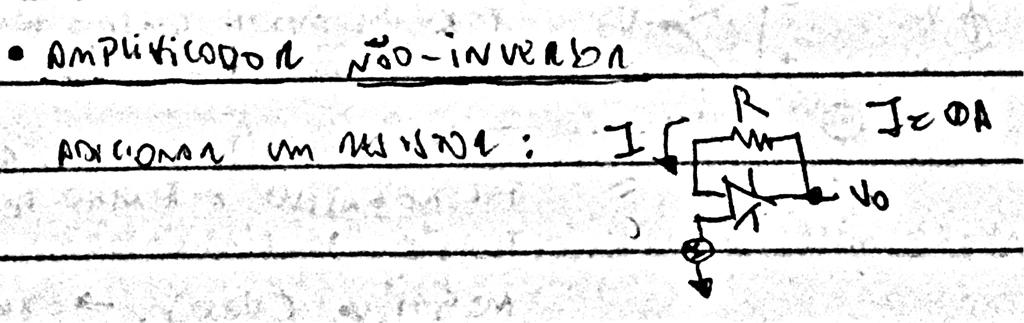 • AMPLIFICADOR NÃO-INVERSOR
ADICIONAR UM RESISTOR: I R I = 0A
Vo